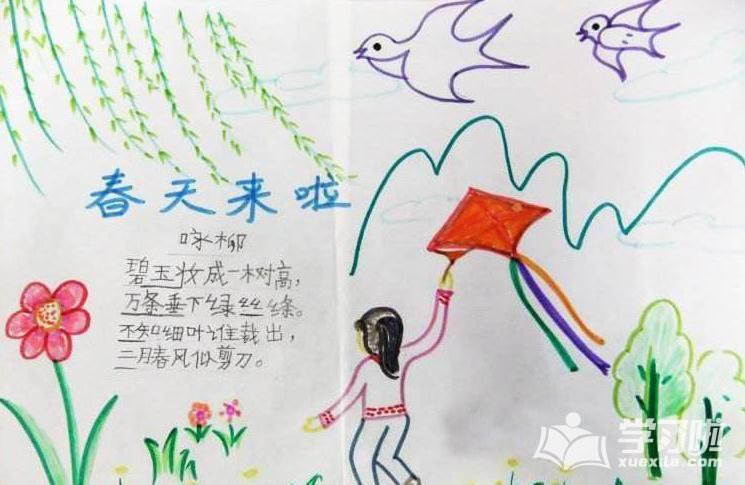 春天来啦
咏柳
碧玉妆成一树高，
万条垂下绿丝绦。
不知细叶谁裁出，
二月春风似剪刀。
学习啦
xuexila.com